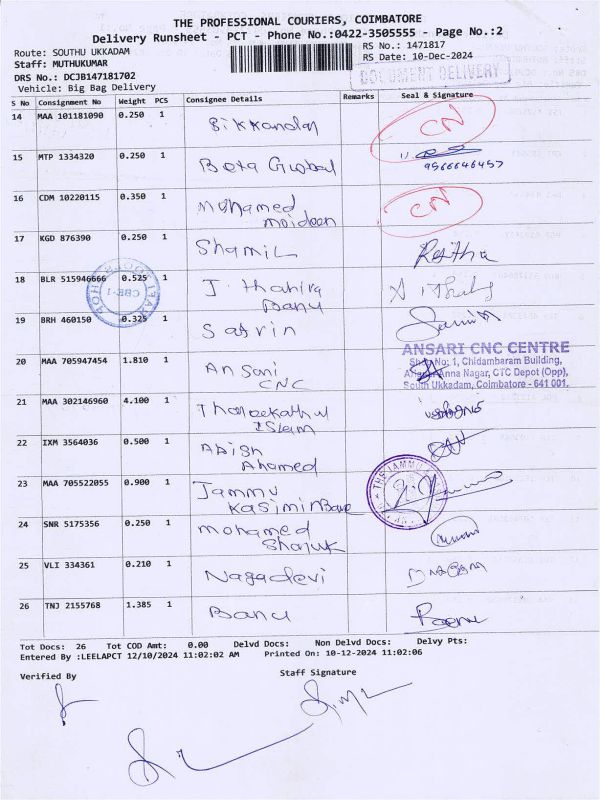 THE PROFESSIONAL COURIERS, COIMBATORE
Delivery Runsheet - PCT - Phone No.:0422-3505555 - Page No.:2
Route: SOUTHU UKKADAM
RS No.: 1471817
Staff: MUTHUKUMAR
RS Date: 10-Dec-2024
DRS No.: DCJB147181702
DOCUMENT DELIVERY
Vehicle: Big Bag Delivery
S No Consignment No Weight PCS Consignee Details Remarks Seal & Signature
14 MAA 101181090 0.250 1 Sikkandar CN
15 MTP 1334320 0.250 1 Beta Global
9566646457
16 CDM 10220115 0.350 1 Mohamed CN
moideen
17 KGD 876390 0.250 1 Shamil
18 BLR 515946666 0.525 1 J. Thahira
Banu
19 BRH 460150 0.325 1 Safrin
CBE-1
20 MAA 705947454 1.810 1 Ansari
CNC
ANSARI CNC CENTRE
Shop No: 1, Chidambaram Building,
Anna Nagar, CTC Depot (Opp),
South Ukkadam, Coimbatore - 641 001.
21 MAA 302146960 4.100 1
Islam
22 IXM 3564036 0.500 1 Abish
Ahamed
23 MAA 705522055 0.900 1 Jammu
THE JAMMU
24 SNR 5175356 0.250 1 mohamed
25 VLI 334361 0.210 1 Nagadevi
26 TNJ 2155768 1.385 1 Banu
Tot Docs: 26 Tot COD Amt: 0.00 Delvd Docs: Non Delvd Docs: Delvy Pts:
Entered By :LEELAPCT 12/10/2024 11:02:02 AM Printed On: 10-12-2024 11:02:06
Verified By Staff Signature